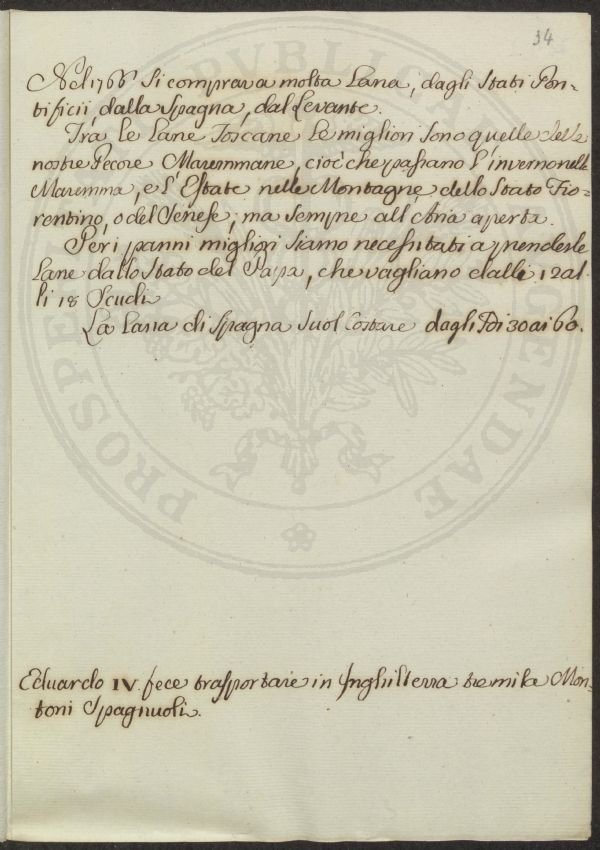 34
Nel 1766 Si comprava molta Lana, dagli Stati Pon-
tificii, dalla Spagna, dal Levante.
Tra le Lane Toscane Le migliori Sono quelle delle
nostre Pecore Maremmane, cioè che passano l'inverno nelle
Maremma, e l'Estate nelle Montagne dello Stato Fio-
rentino, o del Senese; ma sempre all'Aria aperta.
Per i panni migliori Siamo necessitati a prendere le
Lane dallo Stato del Papa, che vagliano dalli 12 al-
li 18 Scudi
La Lana di Spagna Suol Costare dagli 30 ai 60.
Eduardo IV. fece trasportare in Inghilterra tremila Mon-
toni Spagnuoli.
PROSPERITATI PUBLICAE AUGENDAE